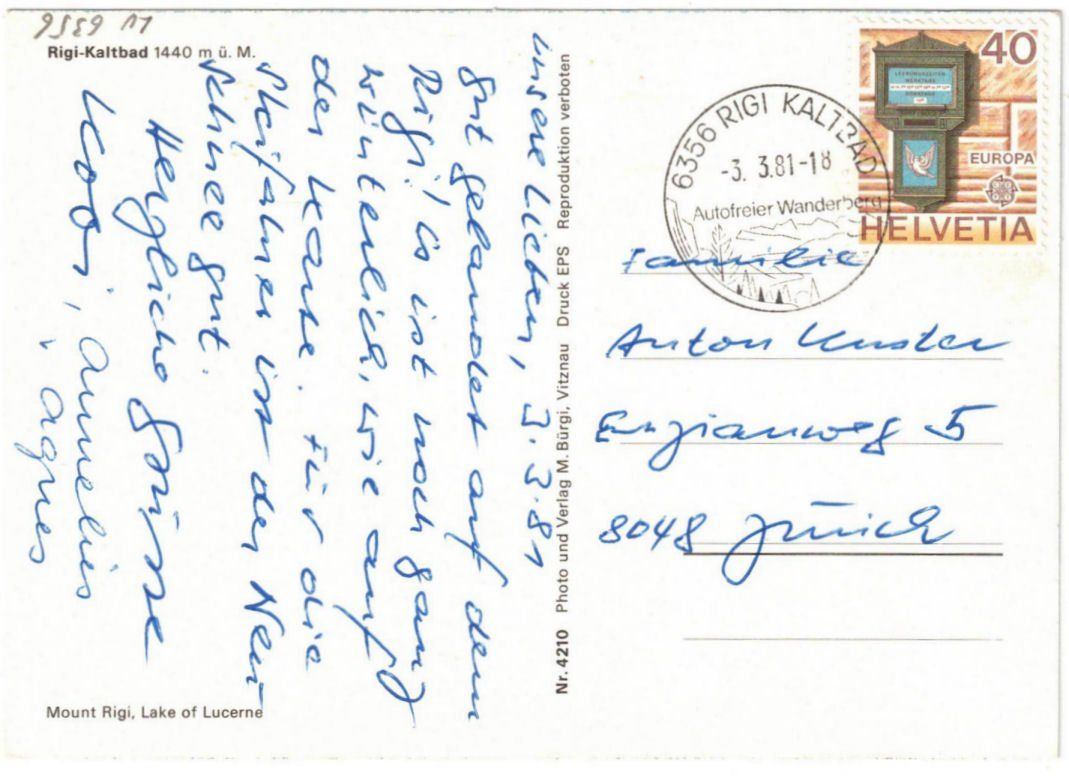 9559 M
Rigi-Kaltbad 1440 m ü. M.
unsere Lieben, 3.3.81
gut gelandet auf dem
Rigi! Es ist noch ganz
winterlich, wie auf
der Karte. Für die
Skifahrer ist der Neu
schnee gut.
Herzliche Grüsse
Annelies
Agnes
Mount Rigi, Lake of Lucerne
Nr. 4210 Photo und Verlag M. Bürgi, Vitznau Druck EPS Reproduktion verboten
6356 RIGI KALTBAD
-3. 3.81-18
Autofreier Wanderberg
40
LEERUNGSZEITEN
WERKTAGE
EUROPA
HELVETIA
Familie
Anton Kuster
Enzianweg 5
8048 Zürich